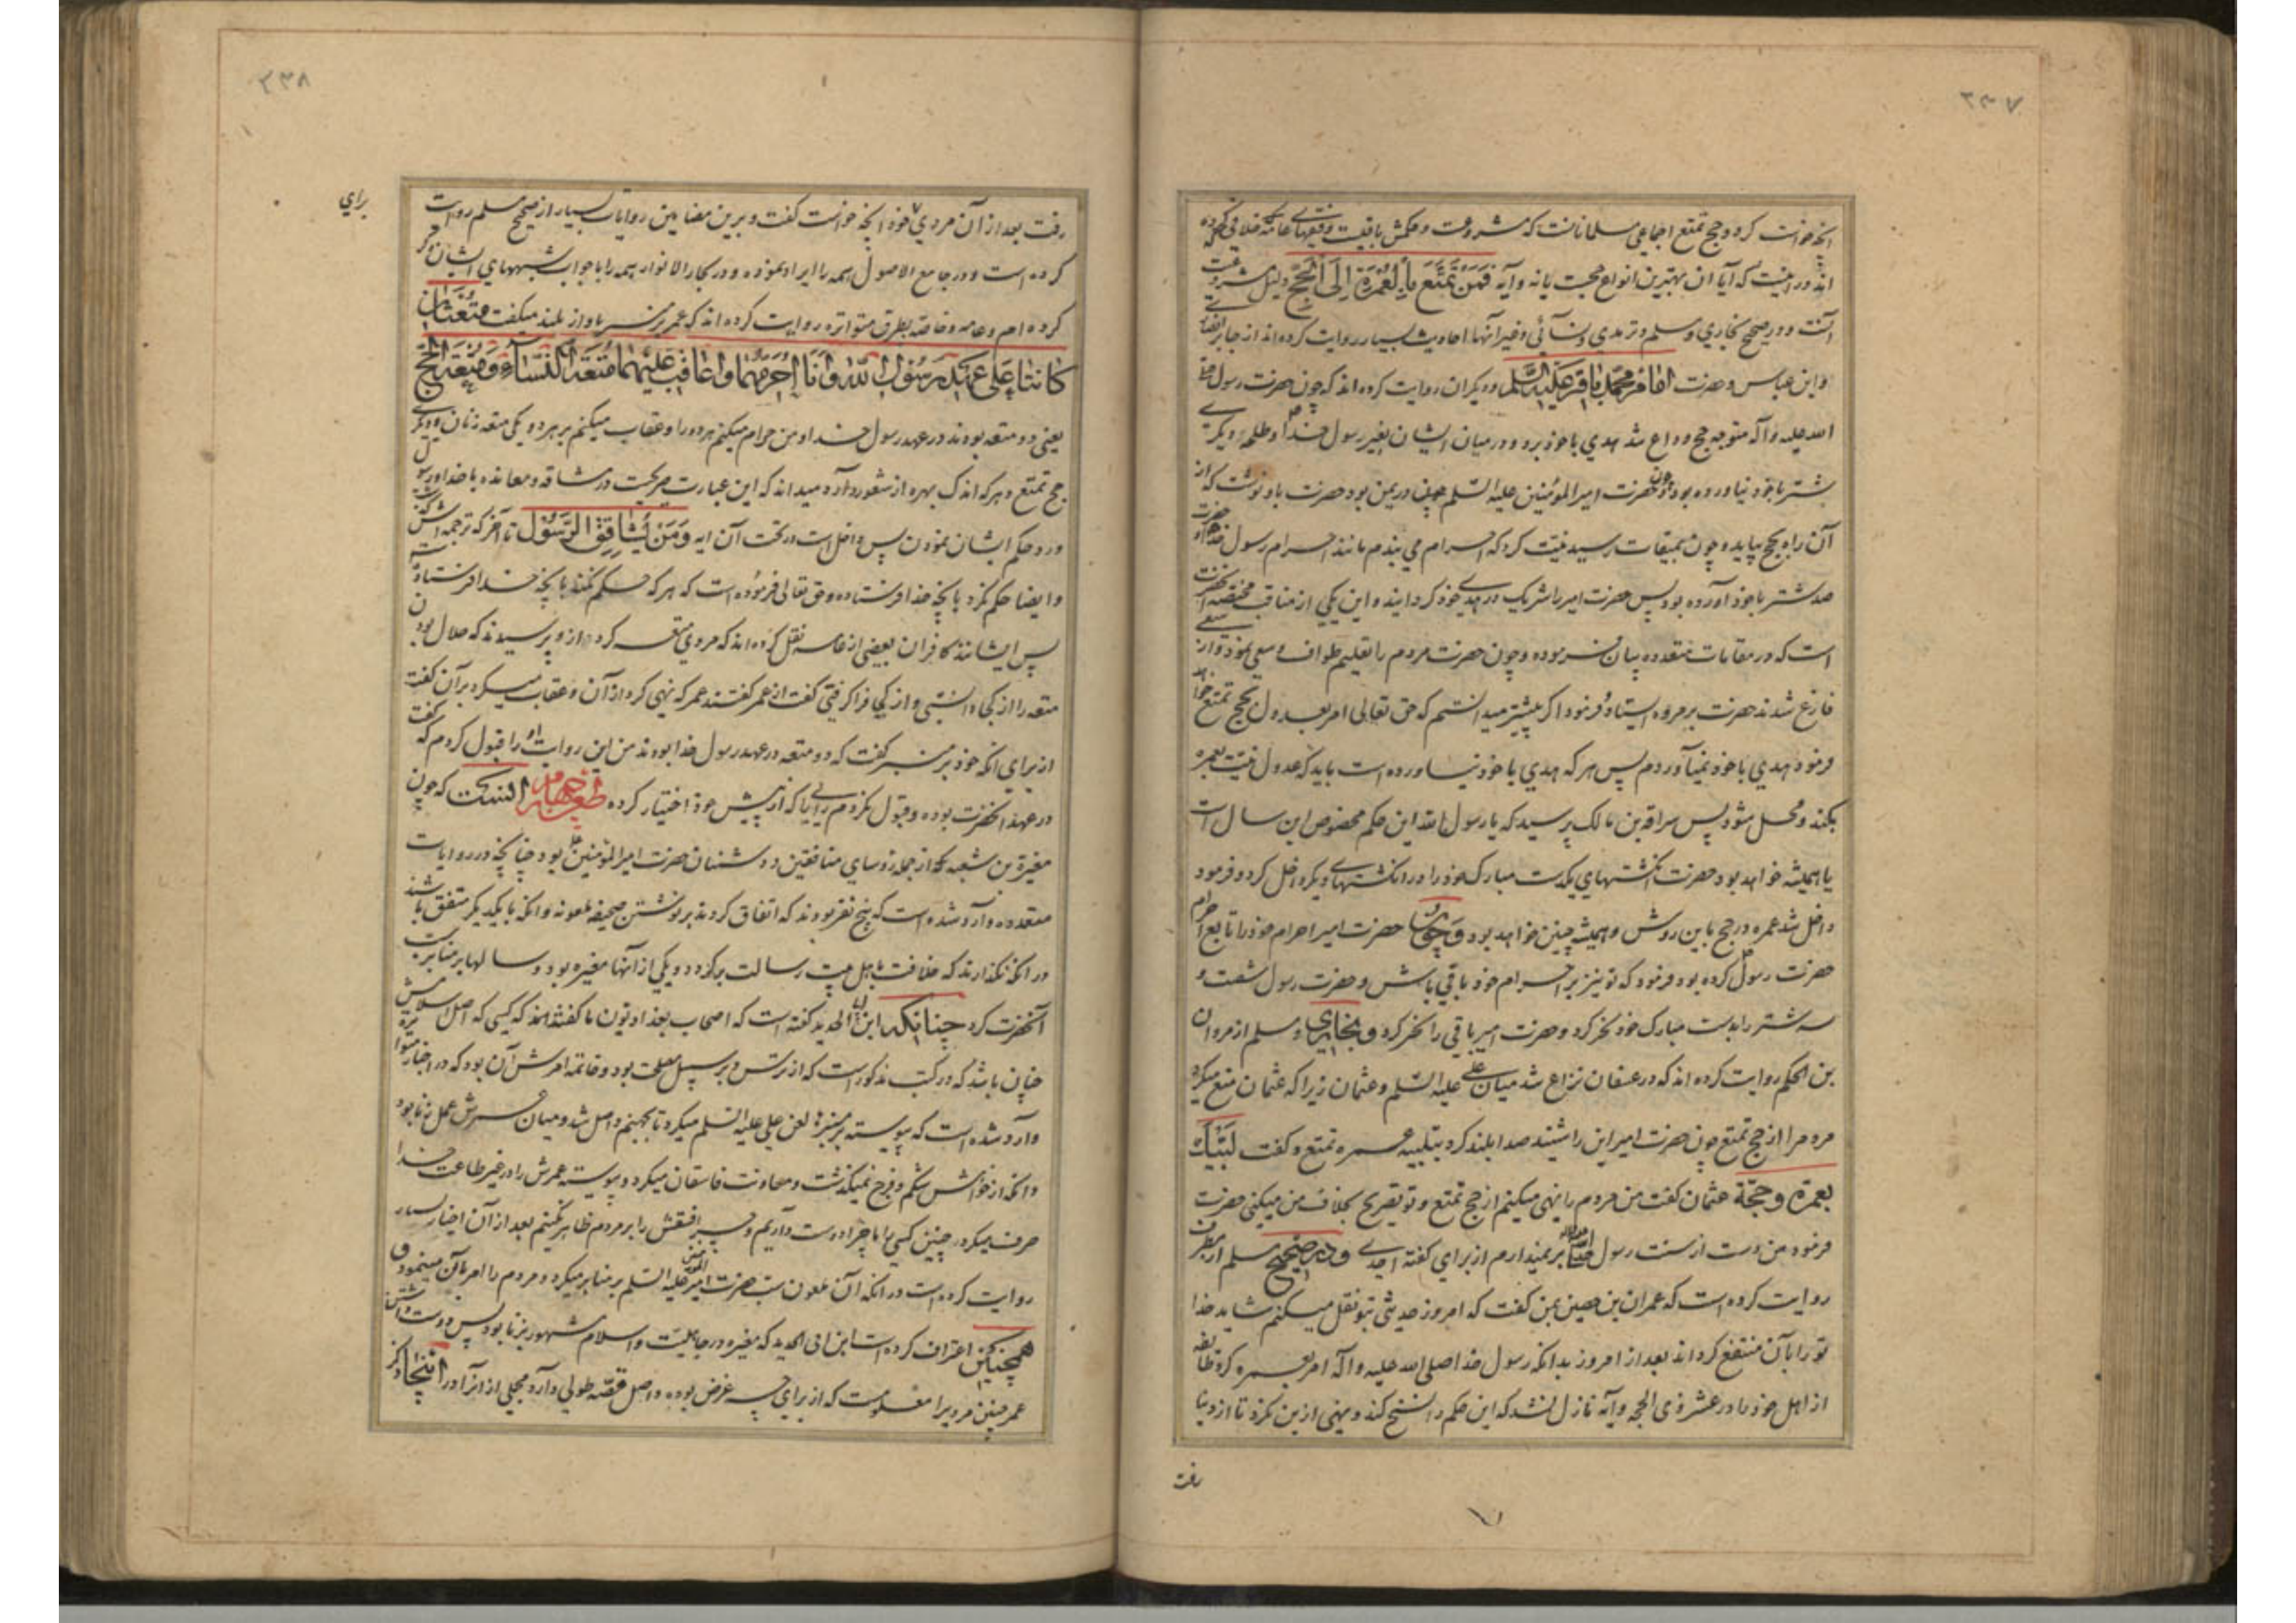 ۲۳۷
آنچه خواست کرد و حج تمتع اجماعی مسلمانانست که مشروعست و حکمش باقیست و فقهای عامه خلافی که کرده
اند در اینست که آیا آن بهترین انواع حجست یا نه و آیه فَمَنْ تَمَتَّعَ بِالْعُمْرَةِ إِلَى الْحَجِّ دلیل مشروعیت
آنست و در صحیح بخاری و مسلم و ترمذی و نسائی و غیر آنها احادیث بسیار روایت کرده اند از جابر انصاری
و ابن عباس و حضرت امام محمد باقر علیه السلم و دیگران روایت کرده اند که چون حضرت رسول صلی
الله علیه و آله متوجه حج وداع شد هدی با خود برد و در میان ایشان بغیر رسول خدا و طلحه دیگری
شتر با خود نیاورده بود و چون حضرت امیر المؤمنین علیه السلم در یمن بود حضرت باو نوشت که از
آن راه بحج بیاید و چون بمیقات رسید نیت کرد که احرام می بندم مانند احرام رسول خدا و حضرت
صد شتر با خود آورده بود پس حضرت امیر را شریک در هدی خود گردانید و این یکی از مناقب مختصه آنحضرت
است که در مقامات متعدده بیان فرموده و چون حضرت مردم را تعلیم طواف و سعی نمود و از سعی
فارغ شدند حضرت بر مروه ایستاد و فرمود اگر پیشتر میدانستم که حق تعالی امر بعدول بحج تمتع خواهد
فرمود هدی با خود نمیآوردم پس هر که هدی با خود نیاورده است باید که عدول نیت بعمره
بکند و محل شود پس سراقة بن مالک پرسید که یا رسول الله این حکم مخصوص این سال است
یا همیشه خواهد بود حضرت انگشتهای یکدست مبارک خود را در انگشتهای دیگر داخل کرد و فرمود
داخل شد عمره در حج باین روش و همیشه چنین خواهد بود و چون حضرت امیر احرام خود را تابع احرام
حضرت رسول کرده بود فرمود که تو نیز بر احرام خود باقی باش و حضرت رسول شصت و
سه شتر را بدست مبارک خود نحر کرد و حضرت امیر باقی را نحر کرد و بخاری و مسلم از مروان
بن الحکم روایت کرده اند که در عسفان نزاع شد میان علی علیه السلم و عثمان زیرا که عثمان منع میکرد
مردم را از حج تمتع چون حضرت امیر این را شنید صدا بلند کرد بتلبیه عمره تمتع و گفت لَبَّیْكَ
بعمرة و حجة عثمان گفت من مردم را نهی میکنم از حج تمتع و تو بتصریح بخلاف من میکنی حضرت
فرمود من دست از سنت رسول خدا بر نمیدارم از برای گفته احدی و در صحیح مسلم از مطرف
روایت کرده است که عمران بن حصین بمن گفت که امروز حدیثی بتو نقل میکنم شاید خدا
تو را بآن منتفع گرداند بعد از امروز بدانکه رسول خدا صلی الله علیه و آله امر بعمره کرد طایفه
از اهل خود را در عشر ذی الحجه و آیه نازل نشد که این حکم را نسخ کند و نهی ازین نکرد تا از دنیا
رفت
۲۳۸
رفت بعد از آن مردی از خود آنچه خواست گفت و برین مضامین روایات بسیار از صحیح مسلم روایت
کرده است و در جامع الاصول همه را ایراد نموده و در بحار الانوار همه را با جواب شبههای ایشان ذکر
کرده ام و عامه و خاصه بطرق متواتره روایت کرده اند که عمر بر منبر باواز بلند میگفت مُتْعَتَانِ
کَانَتَا عَلَی عَهْدِ رَسُولِ اللهِ وَ أَنَا أُحَرِّمُهُمَا وَ أُعَاقِبُ عَلَیْهِمَا مُتْعَةُ النِّسَاءِ وَ مُتْعَةُ الْحَجِّ
یعنی دو متعه بودند در عهد رسول خدا و من حرام میکنم هر دو را و عقاب میکنم بر هر دو یکی متعه زنان و دیگری
حج تمتع و هر که اندک بهره از شعور دارد میداند که این عبارت صریحست در مشاقه و معانده با خدا و رسول
و رد حکم ایشان نمودن پس داخل است در تحت آن آیه وَ مَنْ یُشَاقِقِ الرَّسُولَ تا آخر که ترجمه اش گذشت
و ایضا حکم نکرد بآنچه خدا فرستاده و حق تعالی فرموده است که هر که حکم نکند بآنچه خدا فرستاده
پس ایشانند کافران بعضی از عامه نقل کرده اند که مردی متعه کرد از و پرسیدند که حلال بودن
متعه را از کجا دانستی و از کی فرا گرفتی گفت از عمر گفتند عمر که نهی کرد از آن و عقاب میکرد بر آن گفت
از برای آنکه خود بر منبر گفت که دو متعه در عهد رسول خدا بودند من این روایت او را قبول کردم که گفت
در عهد آنحضرت بوده و قبول نکردم رایی را که از پیش خود اختیار کرده طعن چهارم آنست که چون
مغیرة بن شعبه که از جمله رؤسای منافقین و دشمنان حضرت امیر المؤمنین بود چنانچه در روایات
متعدده وارد شده است که پنج نفر بودند که اتفاق کردند بر نوشتن صحیفه ملعونه و آنکه با یکدیگر متفق باشند
در آنکه نگذارند که خلافت باهل بیت رسالت برگردد و یکی از آنها مغیره بود و سالها بر منابر سب
آنحضرت کرد چنانکه ابن ابی الحدید گفته است که اصحاب بغدادیون ما گفته اند که کسی که اصل اسلامش
چنان باشد که در کتب مذکور است که از ترس و بر سبیل مصلحت بود و خاتمه امرش آن بود که در اخبار متواتره
وارد شده است که پیوسته بر منبرها لعن علی علیه السلم میکرد تا بجهنم واصل شد و میان عمرش عمل زنا بود
و آنکه از خواهش شکم و فرج نمیگذشت و معاونت فاسقان میکرد و پیوسته عمرش را در غیر طاعت خدا
صرف میکرد چنین کسی را ما چرا دوست داریم و چرا فسقش را بر مردم ظاهر نکنیم بعد از آن اخبار بسیار
روایت کرده است در آنکه آن ملعون سب حضرت امیر المؤمنین علیه السلم بر منابر میکرد و مردم را امر بآن مینمود و
همچنین اعتراف کرده است ابن ابی الحدید که مغیره در جاهلیت و اسلام مشهور بزنا بود پس دوست داشتن
عمر چنین مردی را معلومست که از برای چه غرض بوده و اصل قصه طولی دارد مجملی از آنرا در اینجا ذکر
برای